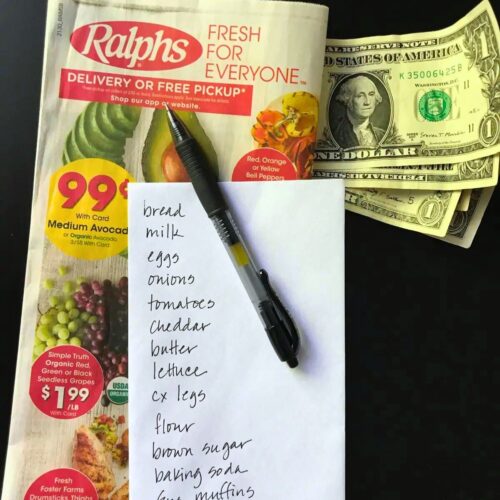 Ralphs
FRESH
FOR
EVERYONE™
DELIVERY OR FREE PICKUP*
Shop our app or website.
Red, Orange
or Yellow
Bell Peppers
99¢
With Card
Medium Avocado
or Organic Avocado
3/$5 With Card
Simple Truth
Organic Red,
Green or Black
Seedless Grapes
$1.99
/LB
With Card
USDA
ORGANIC
Fresh
Foster Farms
Drumsticks, Thighs
bread
milk
eggs
onions
tomatoes
cheddar
butter
lettuce
cx legs
flour
brown sugar
baking soda
muffins
FEDERAL RESERVE NOTE
THE UNITED STATES OF AMERICA
K 35006425 B
WASHINGTON,
ONE DOLLAR
1